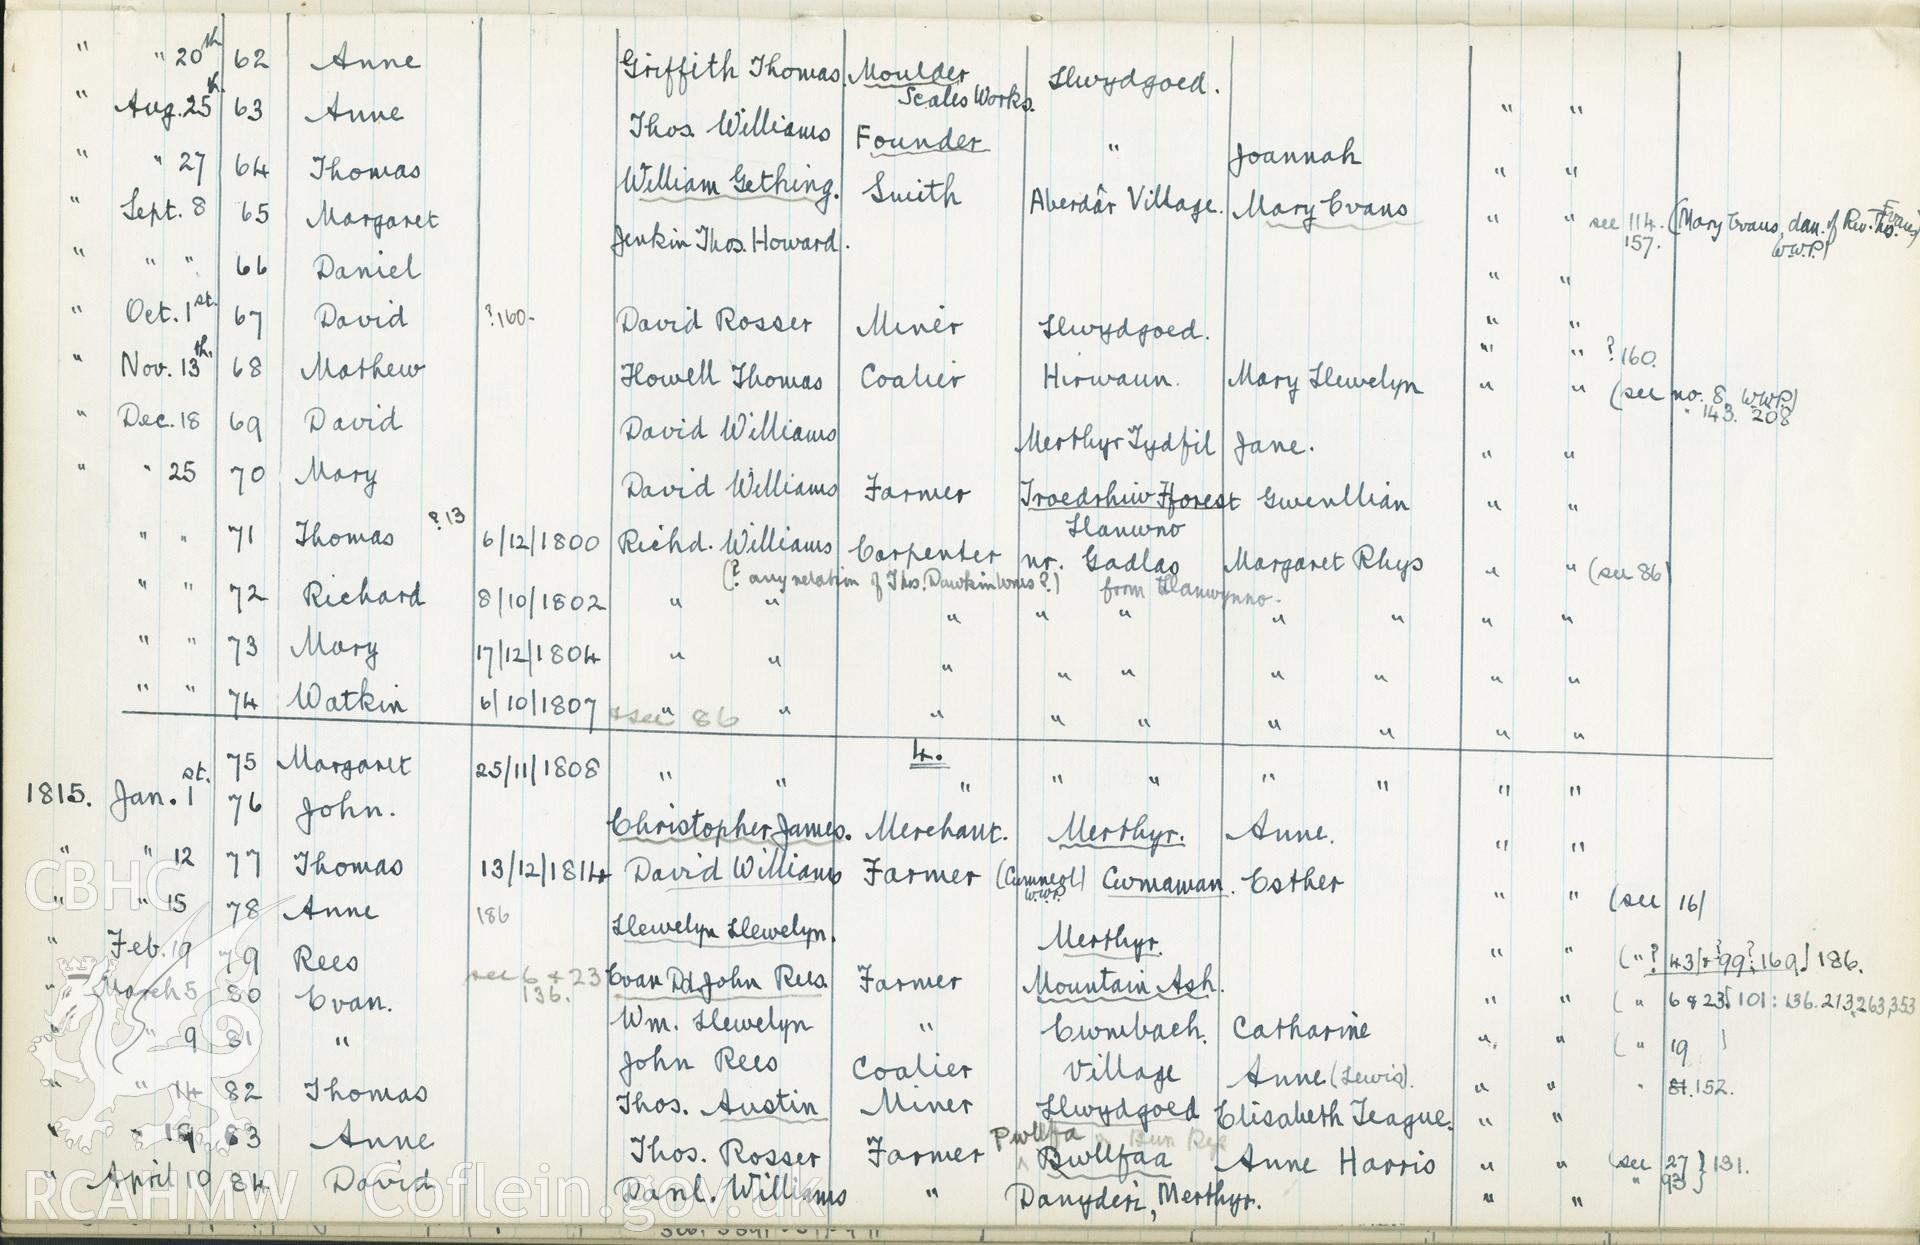 " " 20th 62 Anne Griffith Thomas. Moulder Scales Works. Llwydgoed. " "
" Aug. 25th 63 Anne Thos. Williams Founder " Joannah " "
" " 27 64 Thomas William Gething. Smith Aberdâr Village. Mary Evans " " see 114. 157. (Mary Evans, dau. of Rev. Thos. Evans W.W.P.)
" Sept. 8 65 Margaret Jenkin Thos. Howard. " "
" " " 66 Daniel " "
" Oct. 1st. 67 David ?160- David Rosser Miner Llwydgoed. " " ?160.
" Nov. 13th. 68 Mathew Howell Thomas Coalier Hirwaun. Mary Llewelyn " " (see no. 8 W.W.P.)
" 143. 208
" Dec. 18 69 David David Williams Merthyr Tydfil Jane. " "
" " 25 70 Mary David Williams Farmer Troedrhiw Fforest Llanwno Gwenllian " "
" " 71 Thomas ?13 6/12/1800 Richd. Williams Carpenter nr. Gadlas Margaret Rhys " " (see 86)
(? any relation of Thos. Dawkin Wms?) from Llanwynno-
" " 72 Richard 8/10/1802 " " " " " " " " "
" " 73 Mary 17/12/1804 " " " " " " " " "
" " 74 Watkin 6/10/1807 " " " " " " " " "
see 86
4.
75 Margaret 25/11/1808 " " " " " " " " "
1815. Jan. 1st. 76 John. Christopher James. Merchant. Merthyr. Anne. " "
" " 12 77 Thomas 13/12/1814 David Williams Farmer (Cwmneol) W.W.P. Cwmaman. Esther " " (see 16)
" " 15 78 Anne 186 Llewelyn Llewelyn. Merthyr. " " (" ? 43) + ?99?, 169) 186.
" Feb. 19 79 Rees see 6 + 23 136. Evan Dd. John Rees. Farmer Mountain Ash. " " ( " 6 & 23) 101: 136. 213, 263, 353
" March 5 80 Evan. Wm. Llewelyn " Cwmbach. Catharine " " ( " 19 )
" " 9 81 " John Rees Coalier Village Anne (Lewis). " " " 81. 152.
" " 14 82 Thomas Thos. Austin Miner Llwydgoed Elisabeth Teague. " "
" " 19 83 Anne Thos. Rosser Farmer Pwllfa Bwllfaa Anne Harris " " (see 27 " 93 } 131.
" April 10 84 David Danl. Williams " Danyderi, Merthyr. " "
CBHC
RCAHMW Coflein.gov.uk